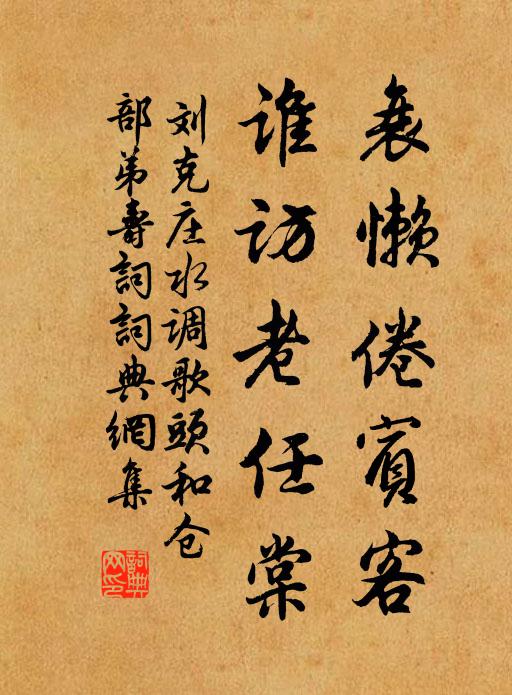 衰懒倦宾客
谁访老任棠
刘克庄水调歌头和仓
部弟寿詞詞典網集
詞典网印